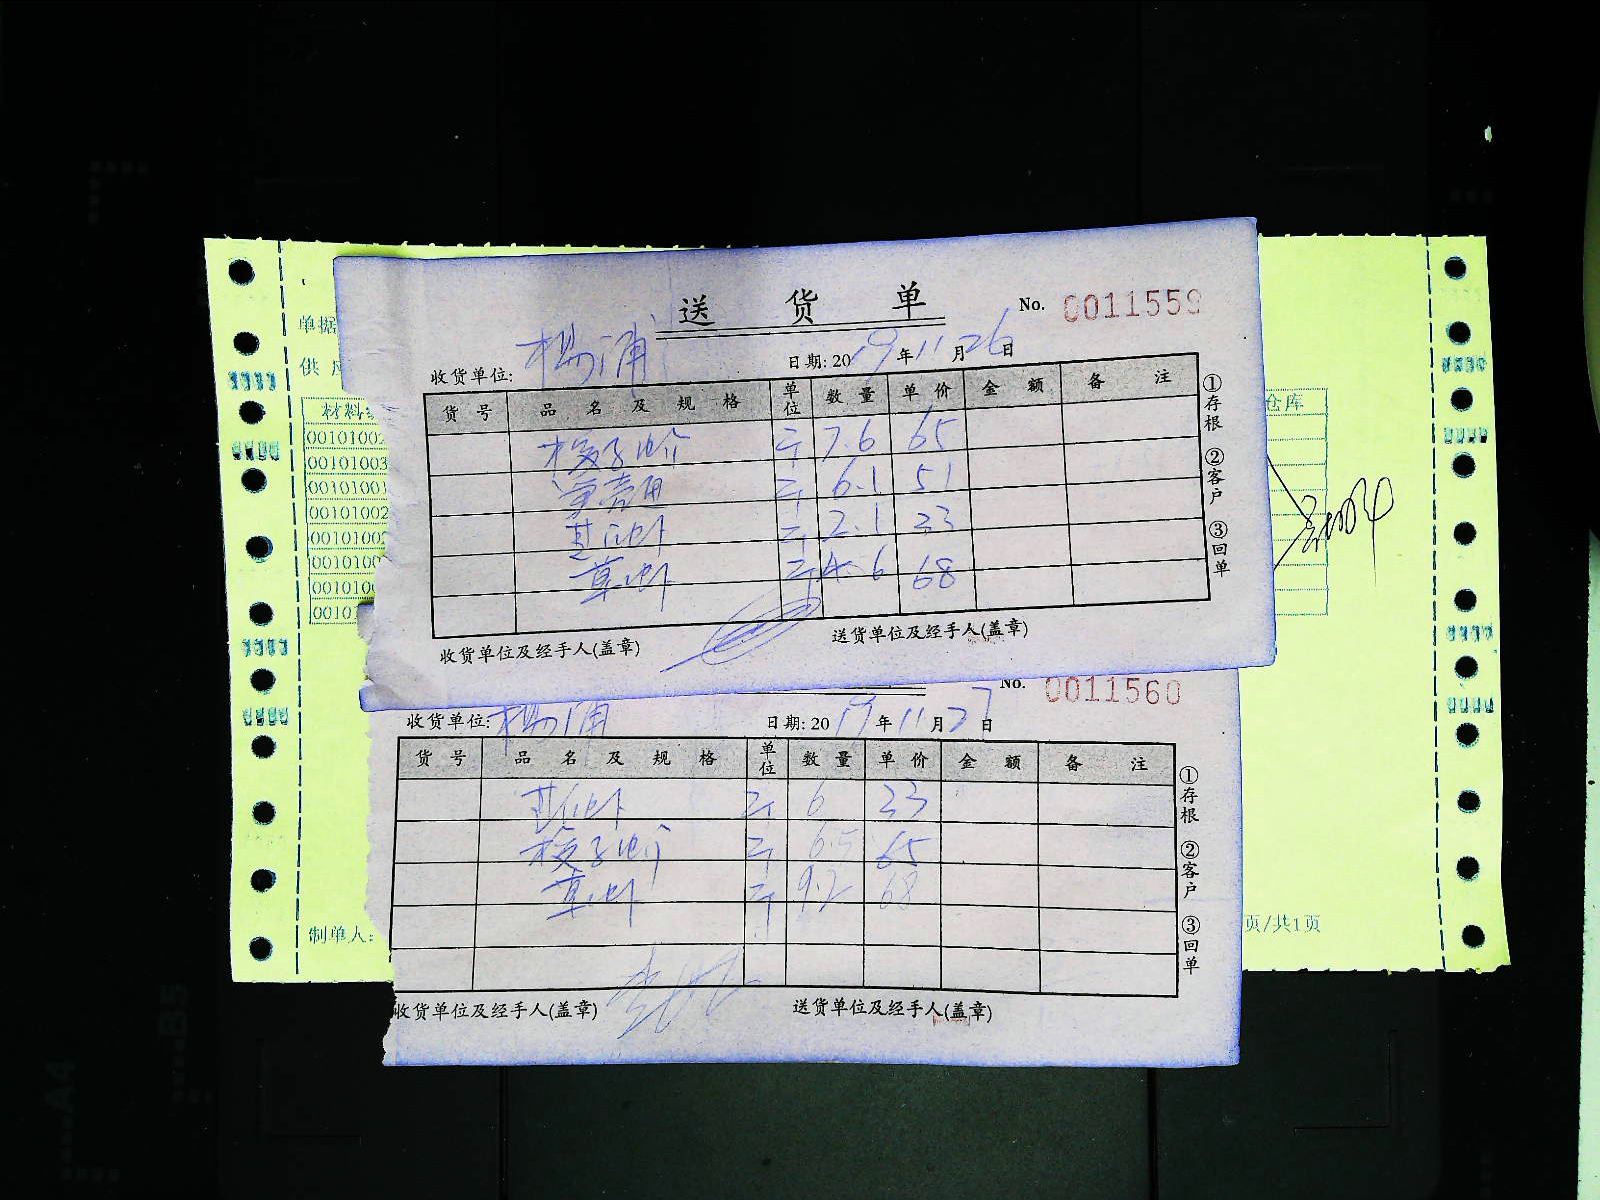 送货单 No. 0011559
收货单位: 杨浦 日期: 2019年11月26日
货号 品名及规格 单位 数量 单价 金额 备注
斤 7.6 65
斤 6.1 51
基围虾 斤 2.1 23
草虾 斤 4.6 68
收货单位及经手人(盖章) 送货单位及经手人(盖章)
①存根 ②客户 ③回单
No. 0011560
收货单位: 杨浦 日期: 2019年11月27日
货号 品名及规格 单位 数量 单价 金额 备注
基围虾 斤 6 23
斤 6.5 65
草虾 斤 9.2 68
收货单位及经手人(盖章) 送货单位及经手人(盖章)
①存根 ②客户 ③回单
单据
供
材料 仓库
00101002
00101003
00101001
00101002
00101002
0010100
0010100
00101
制单人: 页/共1页